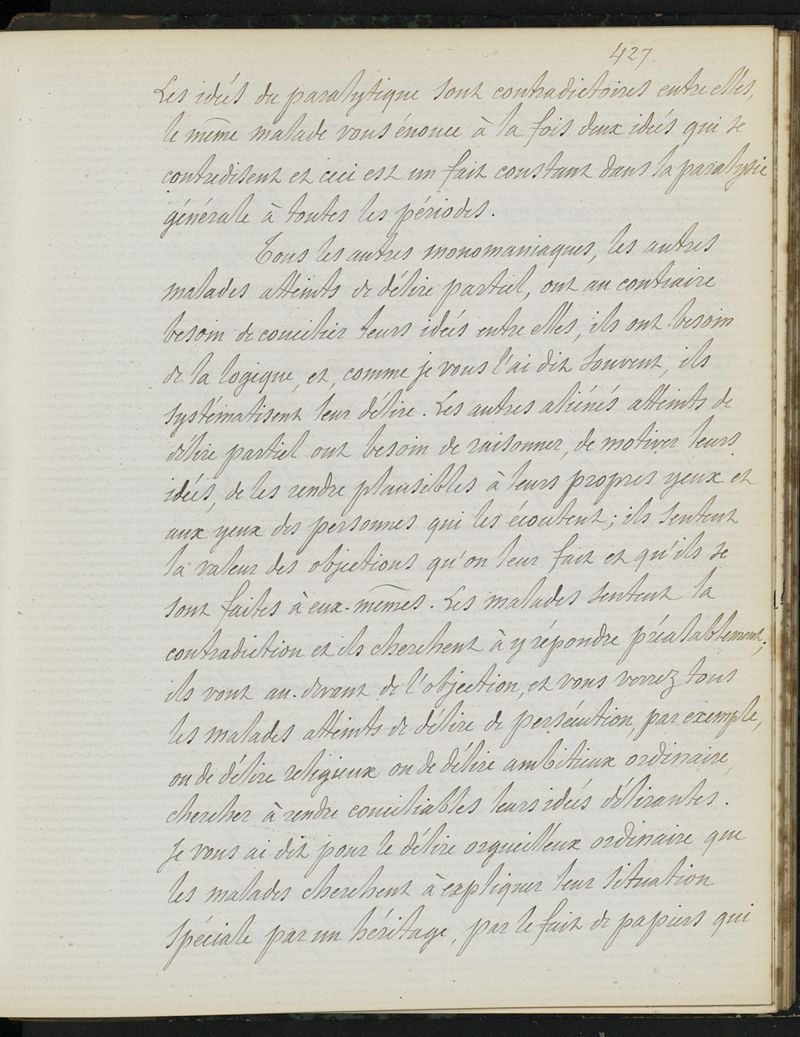 427.
Les idées du paralytique sont contradictoires entre elles,
le même malade vous énonce à la fois deux idées qui se
contredisent et ceci est un fait constant dans la paralysie
générale à toutes les périodes.
Tous les autres monomaniaques, les autres
malades atteints de délire partiel, ont au contraire
besoin de concilier leurs idées entre elles, ils ont besoin
de la logique, et, comme je vous l'ai dit souvent, ils
systématisent leur délire. Les autres aliénés atteints de
délire partiel ont besoin de raisonner, de motiver leurs
idées, de les rendre plausibles à leurs propres yeux et
aux yeux des personnes qui les écoutent; ils sentent
la valeur des objections qu'on leur fait et qu'ils se
sont faites à eux-mêmes. Les malades sentent la
contradiction et ils cherchent à y répondre préalablement;
ils vont au-devant de l'objection, et vous verrez tous
les malades atteints de délire de persécution, par exemple,
ou de délire religieux ou de délire ambitieux ordinaire,
chercher à rendre conciliables leurs idées délirantes.
Je vous ai dit pour le délire orgueilleux ordinaire que
les malades cherchent à expliquer leur situation
spéciale par un héritage, par le fait de papiers qui